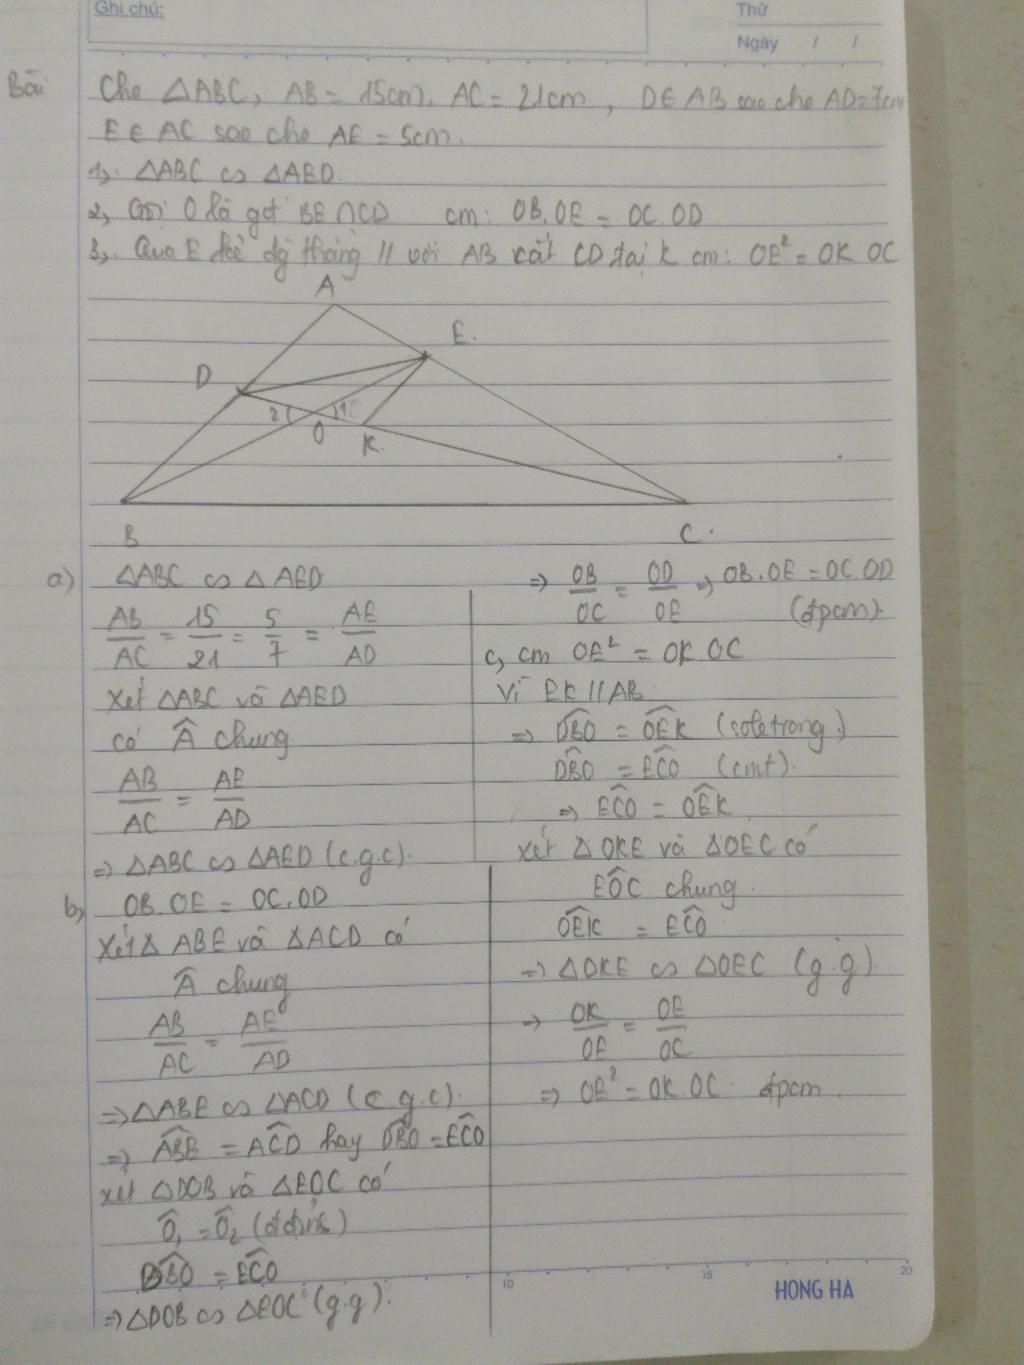 Ghi chú:
Thứ
Ngày / /
Bài
Cho △ABC, AB = 15cm, AC = 21cm, D∈AB sao cho AD=7cm
E∈AC sao cho AE = 5cm.
1, △ABC ∽ △AED
2, Gọi O là gđ BE∩CD cm: OB.OE = OC.OD
3, Qua E kẻ đg thẳng // với AB cắt CD tại K cm: OE² = OK OC
A
E.
D
2
1
O
K.
B
C.
a) △ABC ∽ △AED
AB/AC = 15/21 = 5/7 = AE/AD
Xét △ABC và △AED
có Â chung
AB/AC = AE/AD
⇒ △ABC ∽ △AED (c.g.c).
b, OB.OE = OC.OD
Xét △ ABE và △ACD có
Â chung
AB/AC = AE/AD
⇒ △ABE ∽ △ACD (c g.c).
⇒ ABE = ACD hay DBO = ECO
xét △DOB và △EOC có
Ô₁ = Ô₂ (đđỉnh)
DBO = ECO
⇒ △DOB ∽ △EOC (g.g).
⇒ OB/OC = OD/OE ⇒ OB.OE = OC.OD
(đpcm)
c, cm OE² = OK.OC
Vì EK // AB
⇒ DBO = OEK (sole trong)
DBO = ECO (cmt).
⇒ ECO = OEK
xét △OKE và △OEC có
EOC chung.
OEK = ECO
⇒ △OKE ∽ △OEC (g.g).
⇒ OK/OE = OE/OC
⇒ OE² = OK.OC đpcm
5 10 15 20
HONG HA